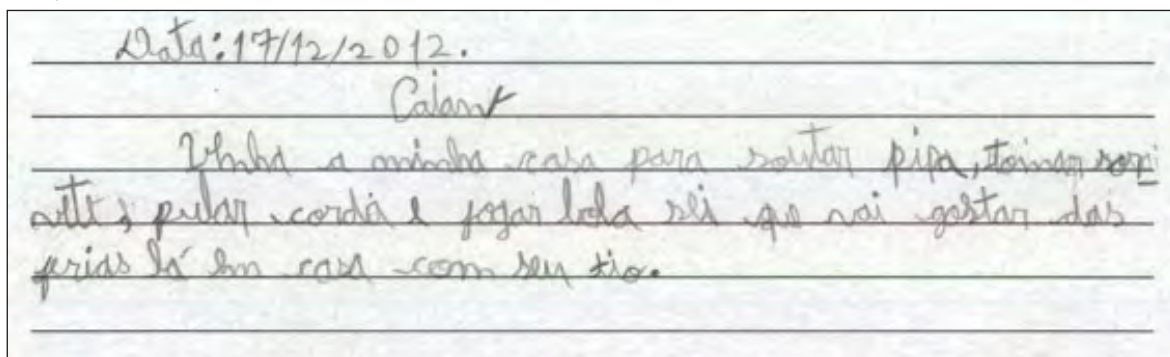 Data: 17/12/2012.
Caian
Venha a minha casa para soutar pipa, tomar sor
vete, pular corda e jogar bola sei que vai gostar das
ferias lá em casa com seu tio.